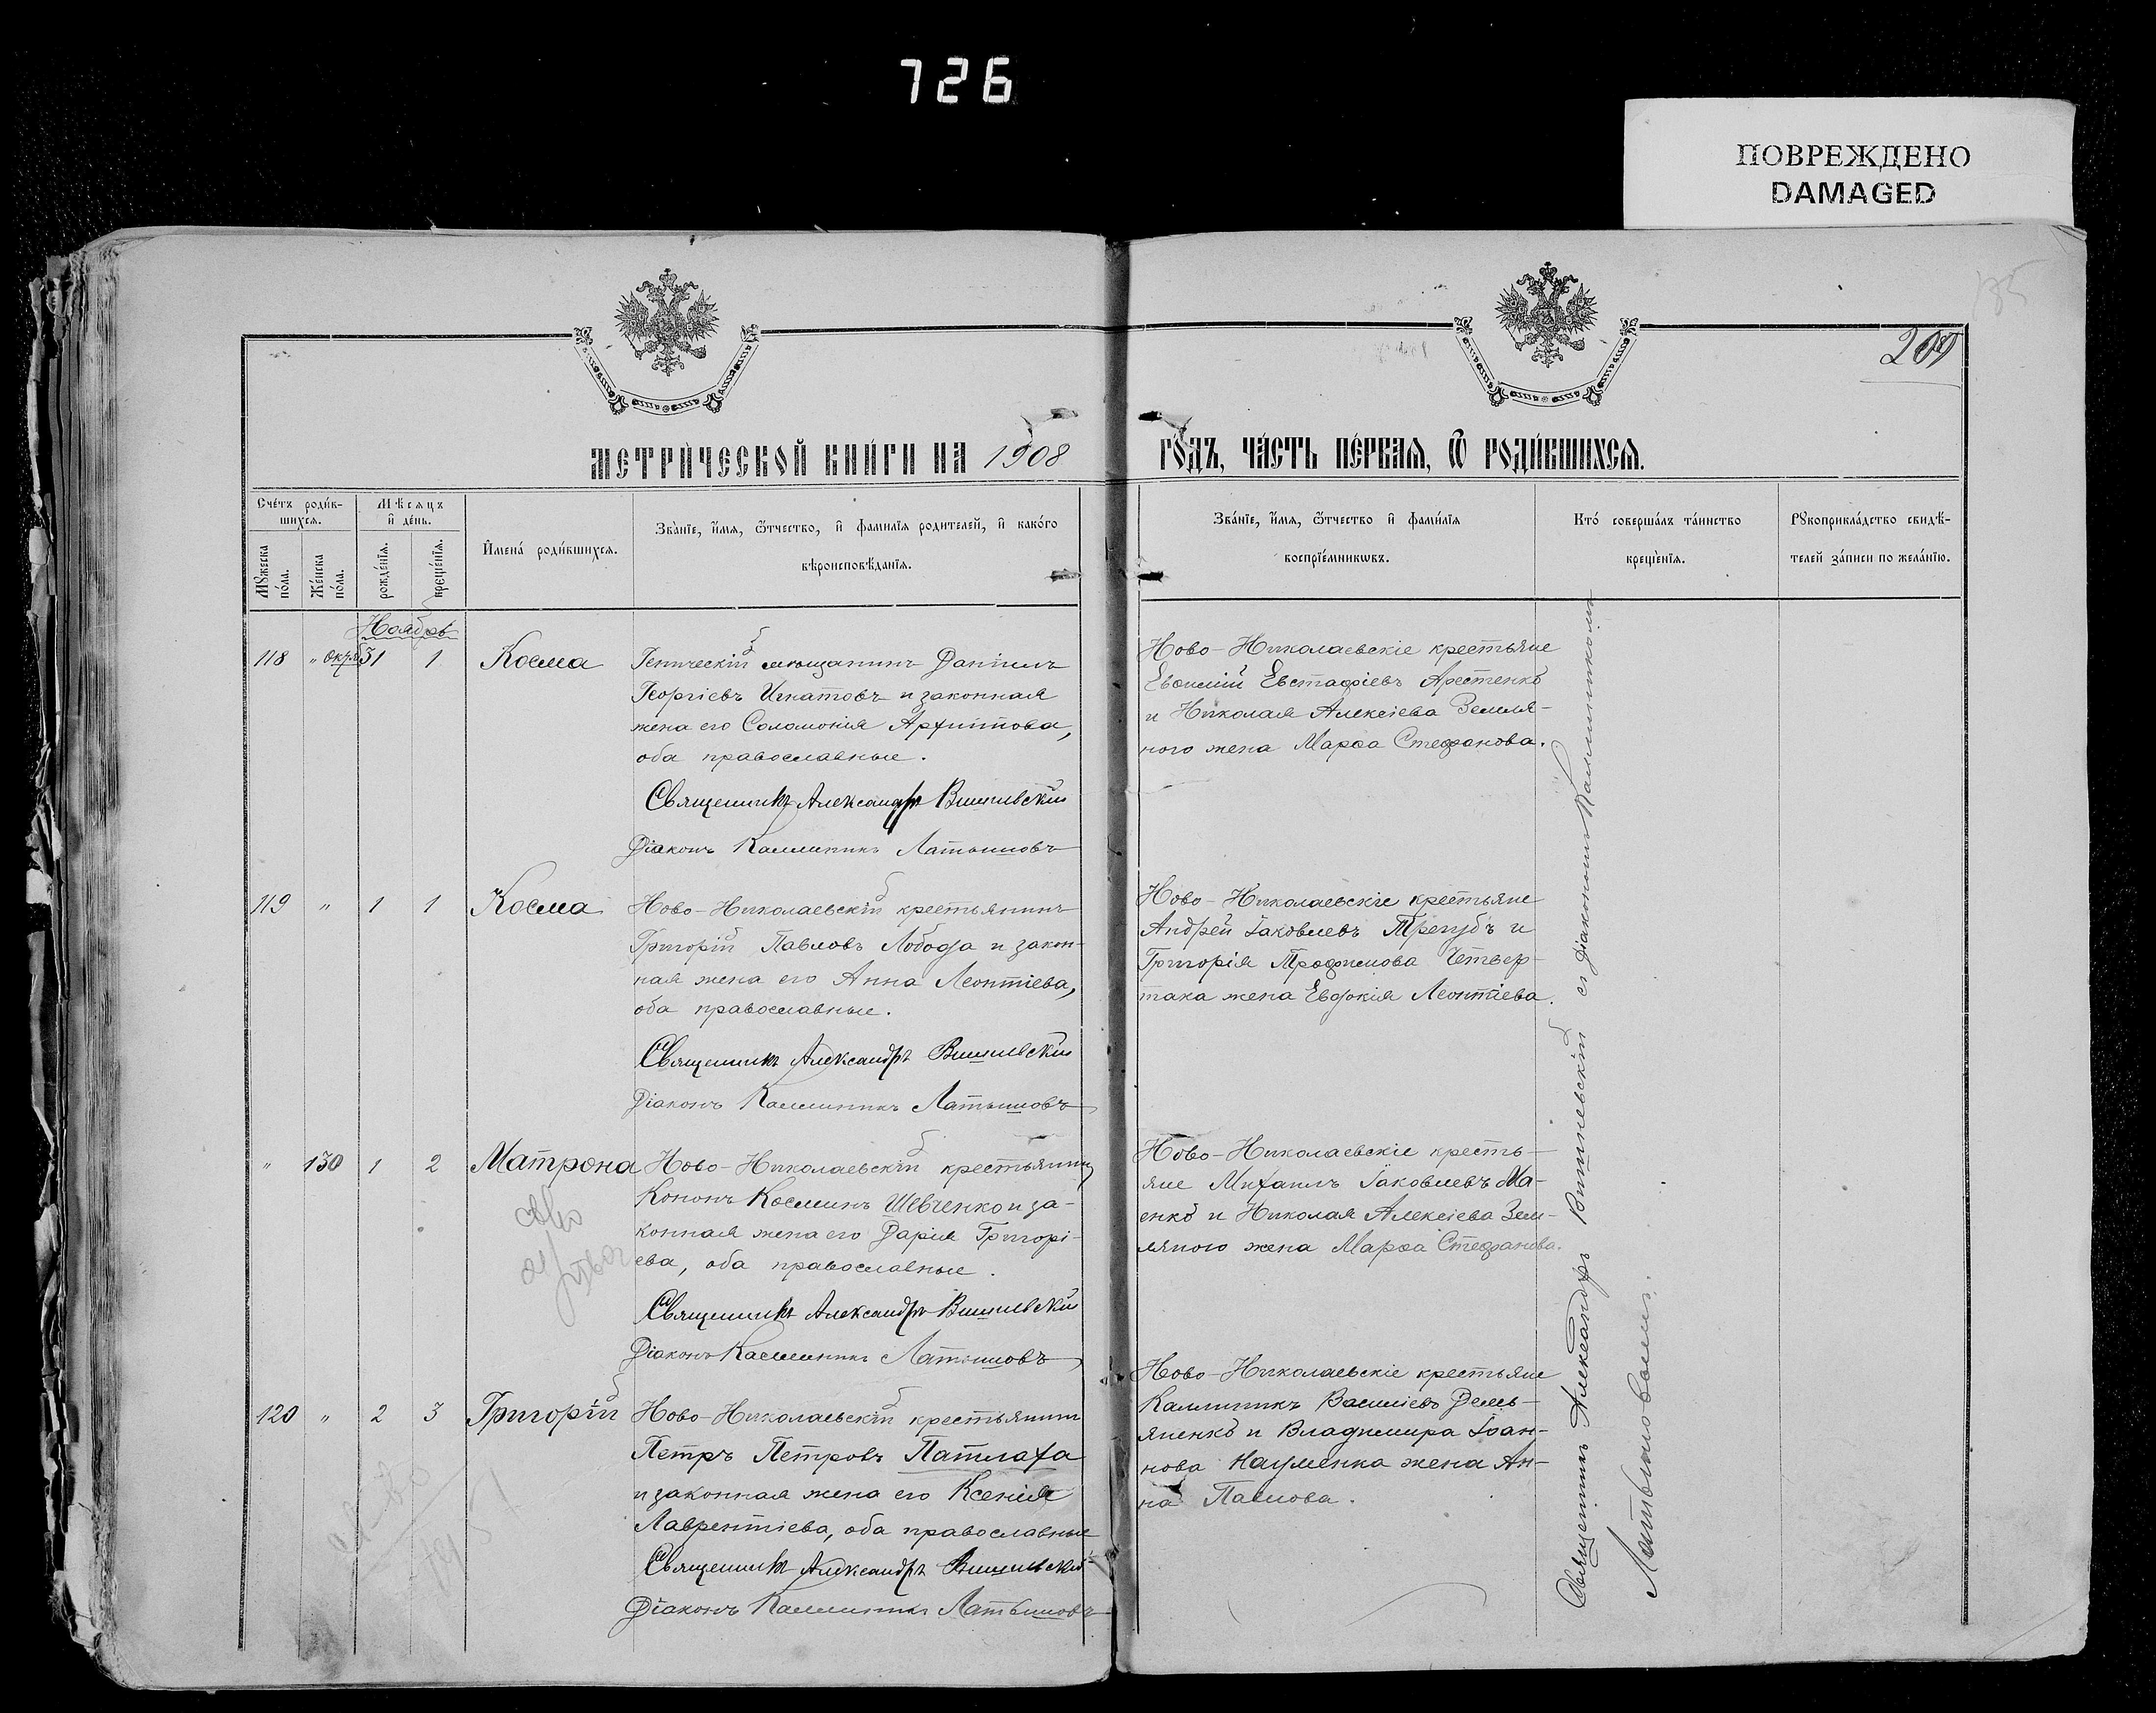 726
ПОВРЕЖДЕНО
DAMAGED
209
МЕТРИ́ЧЕСКОЙ КНИ́ГИ НА 1908
ГО́ДЪ, ЧА́СТЬ ПЕ́РВАЯ, Ѿ РОДИ́ВШИХСЯ.
Сче́тъ роди́в-
шихся.
Мѣсяцъ
и҆ де́нь.
Мꙋжеска
по́ла.
Же́нска
по́ла.
рожде́нїя.
креще́нїя.
И҆мена̀ роди́вшихся.
Зва́нїе, и҆́мя, ѻ҆́тчество, и҆ фами́лїя родителей, и҆ како́го
вѣроисповѣ́данїя.
Зва́нїе, и҆́мя, ѻ҆́тчество и҆ фами́лїя
воспрїе́мникѡвъ.
Кто́ соверша́лъ та́инство
креще́нїя.
Рꙋкоприкла́дство свидѣ́-
телей за́писи по жела́нїю.
Ноябрь
118 " Окт. 31 1 Косма
Геническій мѣщанинъ Даніилъ
Георгіевъ Игнатовъ и законная
жена его Соломонія Архипова,
оба православные.
Священникъ Александръ Витилевскій
Діаконъ Каллиникъ Латышовъ
Ново-Николаевскіе крестьяне
Евѳимій Евстафіевъ
и Николая Алексіева Земля-
ного жена Марѳа Стефанова.
119 " 1 1 Косма
Ново-Николаевскій крестьянинъ
Григорій Павловъ Лобода и закон-
ная жена его Анна Леонтіева,
оба православные.
Священникъ Александръ Витилевскій
Діаконъ Каллиникъ Латышовъ
Ново-Николаевскіе крестьяне
Андрей Іаковлевъ Трегубъ и
Григорія Трофимова Четвер-
така жена Евдокія Леонтіева.
" 130 1 2 Матрона
Ново-Николаевскій крестьянинъ
Кононъ Косминъ Шевченко и за-
конная жена его Дарія Григорі-
ева, оба православные.
Священникъ Александръ Витилевскій
Діаконъ Каллиникъ Латышовъ
Ново-Николаевскіе кресть-
яне Михаилъ Іаковлевъ Ма-
енко и Николая Алексіева Зем-
ляного жена Марѳа Стефанова.
120 " 2 3 Григорій
Ново-Николаевскій крестьянинъ
Петръ Петровъ Патлаха
и законная жена его Ксенія
Лаврентіева, оба православные
Священникъ Александръ Витилевскій
Діаконъ Каллиникъ Латышовъ
Ново-Николаевскіе крестьяне
Каллиникъ Василіевъ Демь-
яненко и Владимира Іоан-
нова Науменка жена Ан-
на Павлова.
Священникъ Александръ Витилевскій съ діакономъ Каллиникомъ
Латышовымъ.